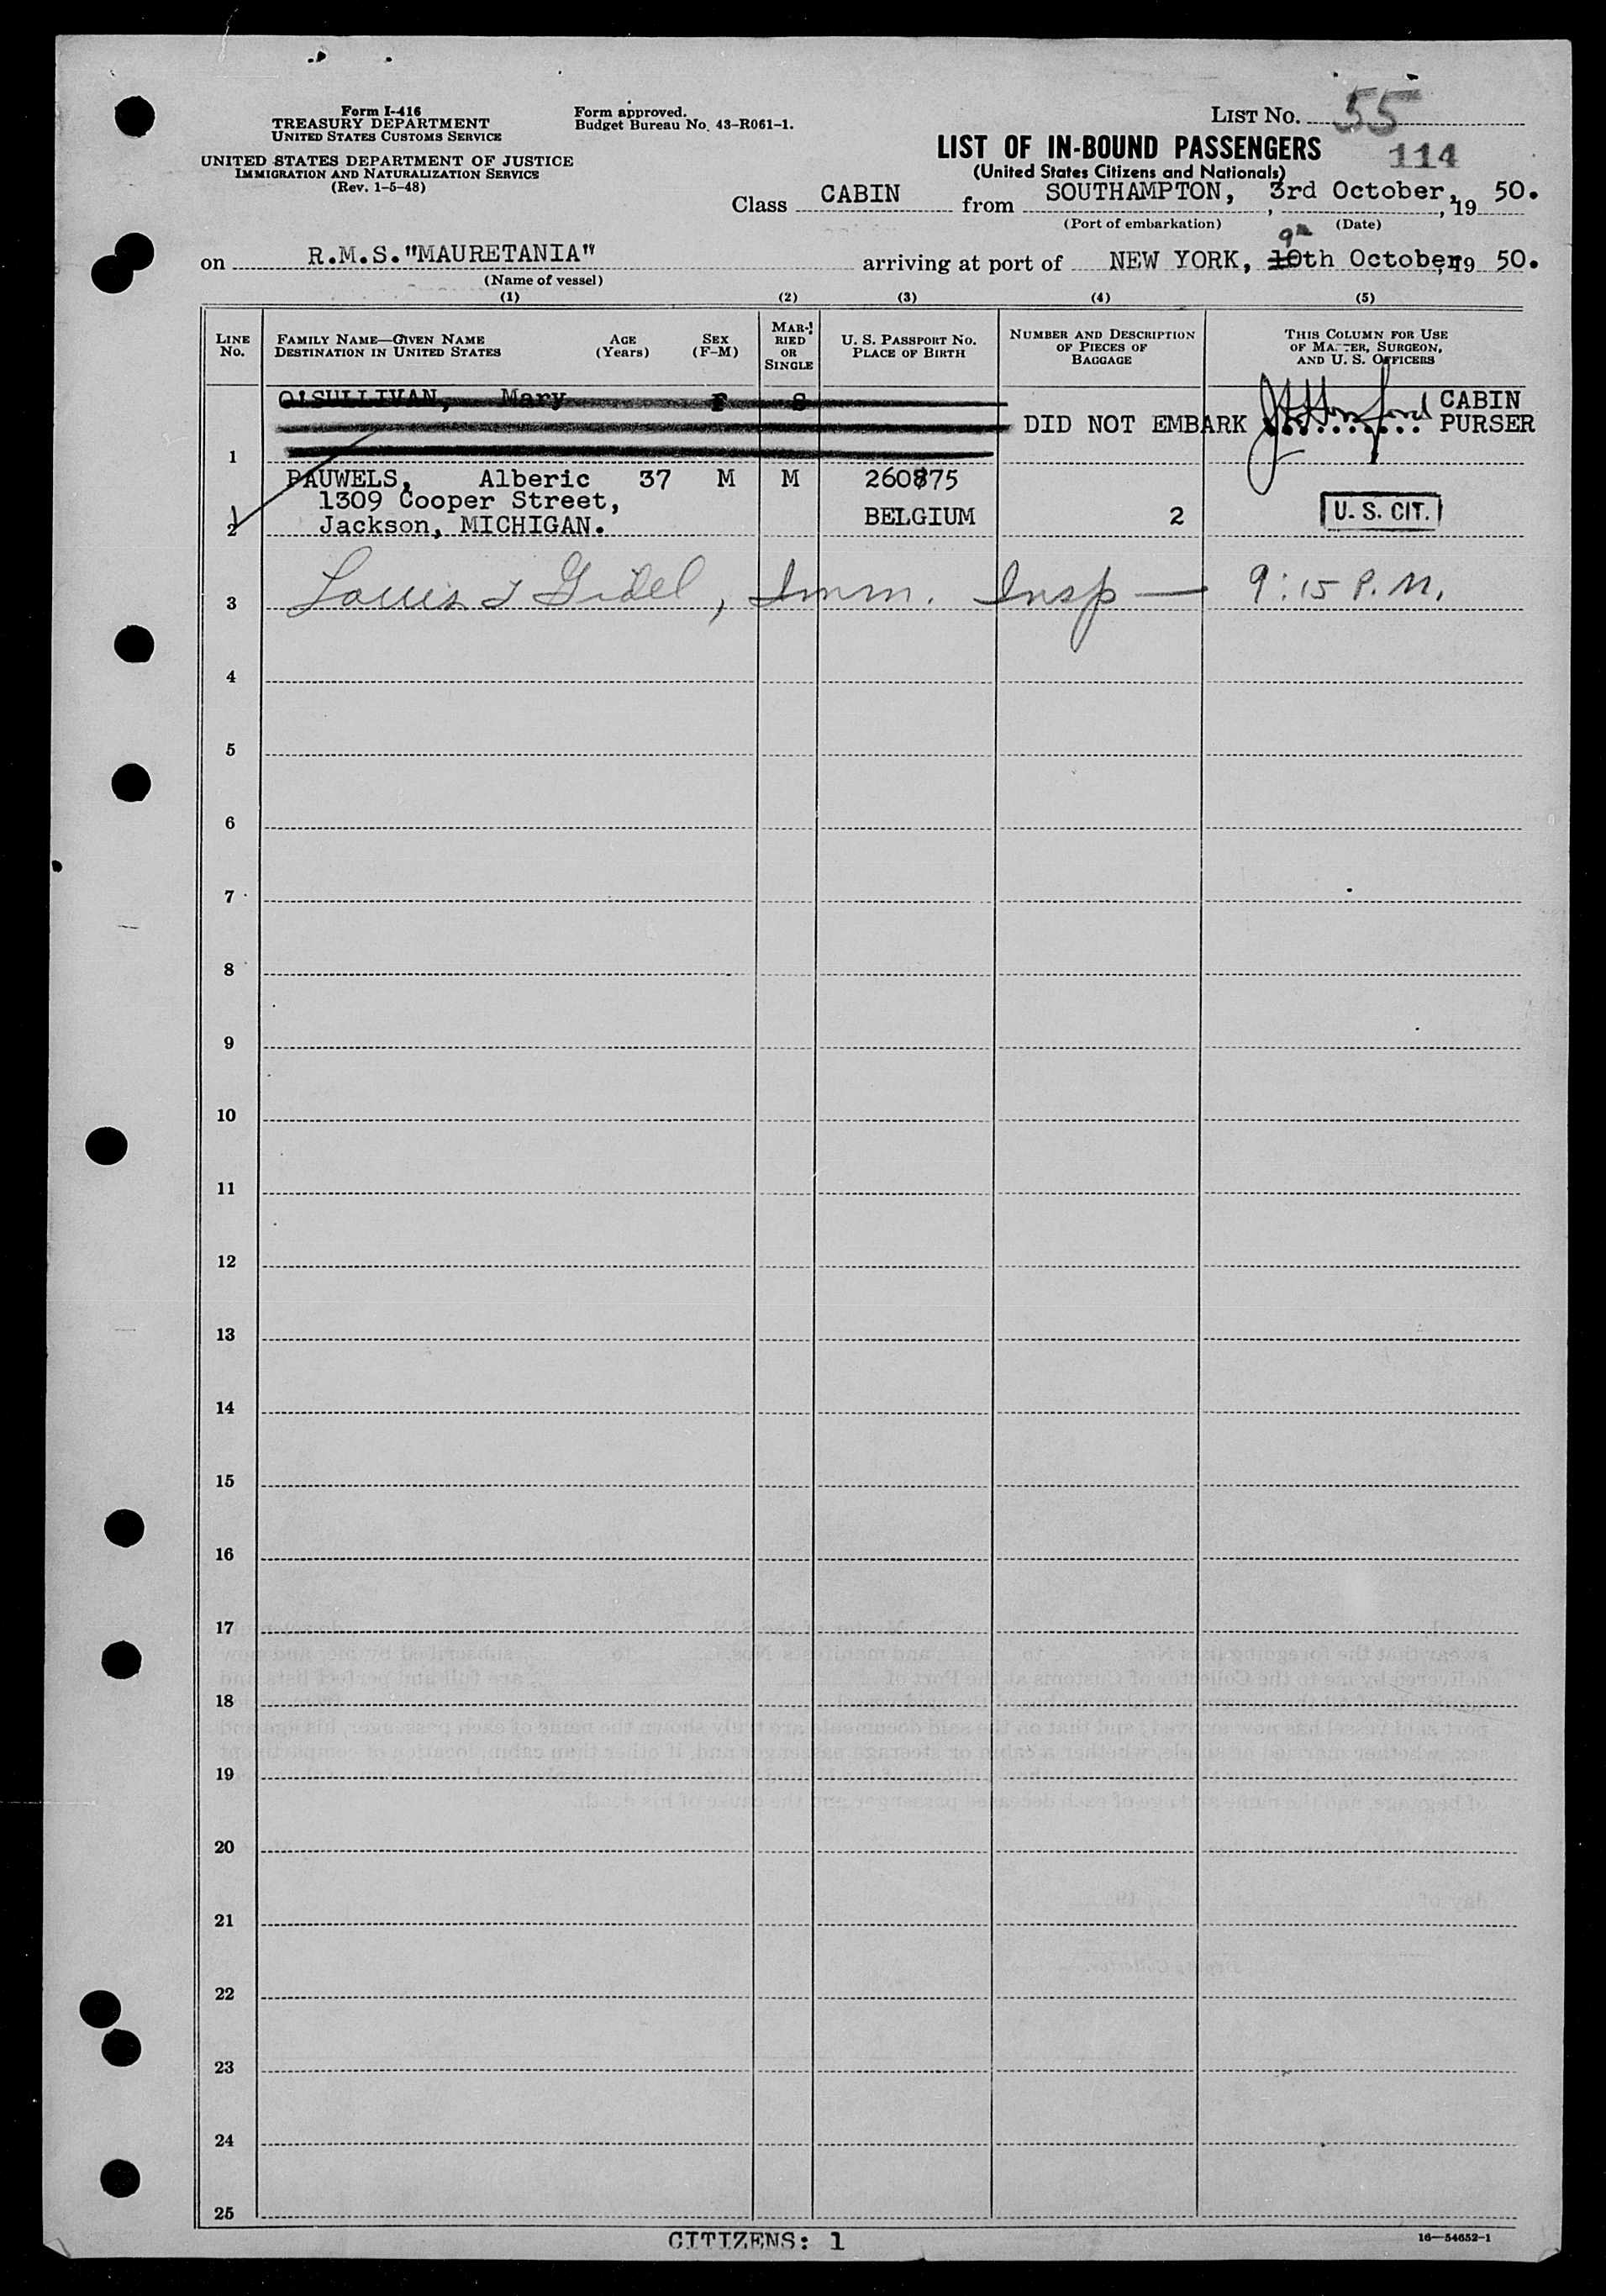 Form I-416
TREASURY DEPARTMENT
UNITED STATES CUSTOMS SERVICE
UNITED STATES DEPARTMENT OF JUSTICE
IMMIGRATION AND NATURALIZATION SERVICE
(Rev. 1-5-48)
Form approved.
Budget Bureau No. 43-R061-1.
LIST NO. 55
114
LIST OF IN-BOUND PASSENGERS
(United States Citizens and Nationals)
Class CABIN from SOUTHAMPTON, 3rd October, 19 50.
(Port of embarkation) (Date)
9th
on R.M.S."MAURETANIA" arriving at port of NEW YORK, 10th October, 19 50.
(Name of vessel)
(1) (2) (3) (4) (5)
LINE NO.
FAMILY NAME—GIVEN NAME
DESTINATION IN UNITED STATES
AGE
(Years)
SEX
(F-M)
MARRIED
OR
SINGLE
U. S. PASSPORT NO.
PLACE OF BIRTH
NUMBER AND DESCRIPTION
OF PIECES OF
BAGGAGE
THIS COLUMN FOR USE
OF MASTER, SURGEON,
AND U. S. OFFICERS
O'SULLIVAN, Mary F S
DID NOT EMBARK CABIN
PURSER
1
PAUWELS, Alberic 37 M M 260875
1309 Cooper Street,
2 Jackson, MICHIGAN. BELGIUM 2 U. S. CIT.
3 Louis J Gidel, Imm. Insp — 9:15 P.M.
4
5
6
7
8
9
10
11
12
13
14
15
16
17
18
19
20
21
22
23
24
25
CITIZENS: 1
16—54652-1